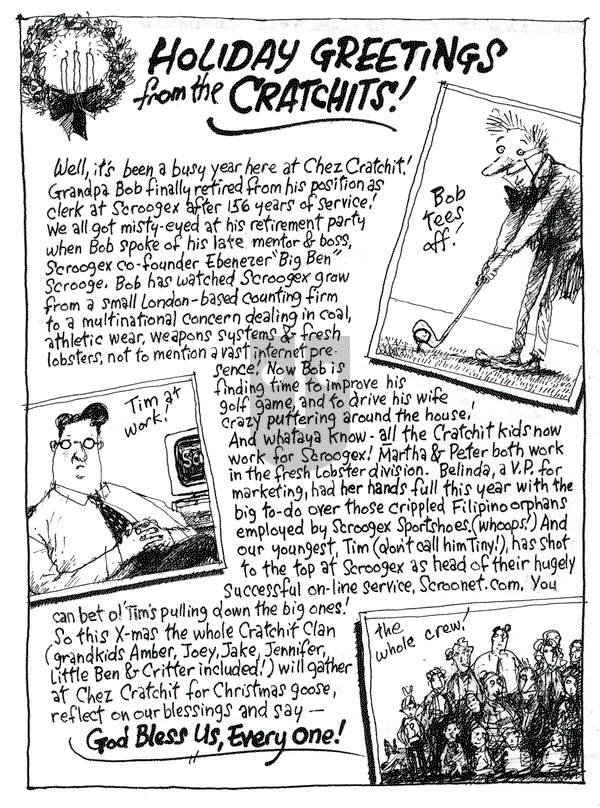 HOLIDAY GREETINGS
from the CRATCHITS!
Well, it's been a busy year here at Chez Cratchit!
Grandpa Bob finally retired from his position as
clerk at Scroogex after 156 years of service!
We all got misty-eyed at his retirement party
when Bob spoke of his late mentor & boss,
Scroogex co-founder Ebenezer "Big Ben"
Scrooge. Bob has watched Scroogex grow
from a small London-based counting firm
to a multinational concern dealing in coal,
athletic wear, weapons systems & fresh
lobsters, not to mention a vast internet pre-
sence! Now Bob is
finding time to improve his
golf game, and to drive his wife
crazy puttering around the house!
And whataya know - all the Cratchit kids now
work for Scroogex! Martha & Peter both work
in the fresh lobster division. Belinda, a V.P. for
marketing, had her hands full this year with the
big to-do over those crippled Filipino orphans
employed by Scroogex Sportshoes, (whoops!) And
our youngest, Tim (don't call him Tiny!), has shot
to the top at Scroogex as head of their hugely
successful on-line service, Scroonet.com. You
can bet ol' Tim's pulling down the big ones!
So this X-mas the whole Cratchit Clan
(grandkids Amber, Joey, Jake, Jennifer,
Little Ben & Critter included!) will gather
at Chez Cratchit for Christmas goose,
reflect on our blessings and say —
God Bless Us, Every One!
Bob
tees
off!
Tim at
work!
SC
the
whole crew!